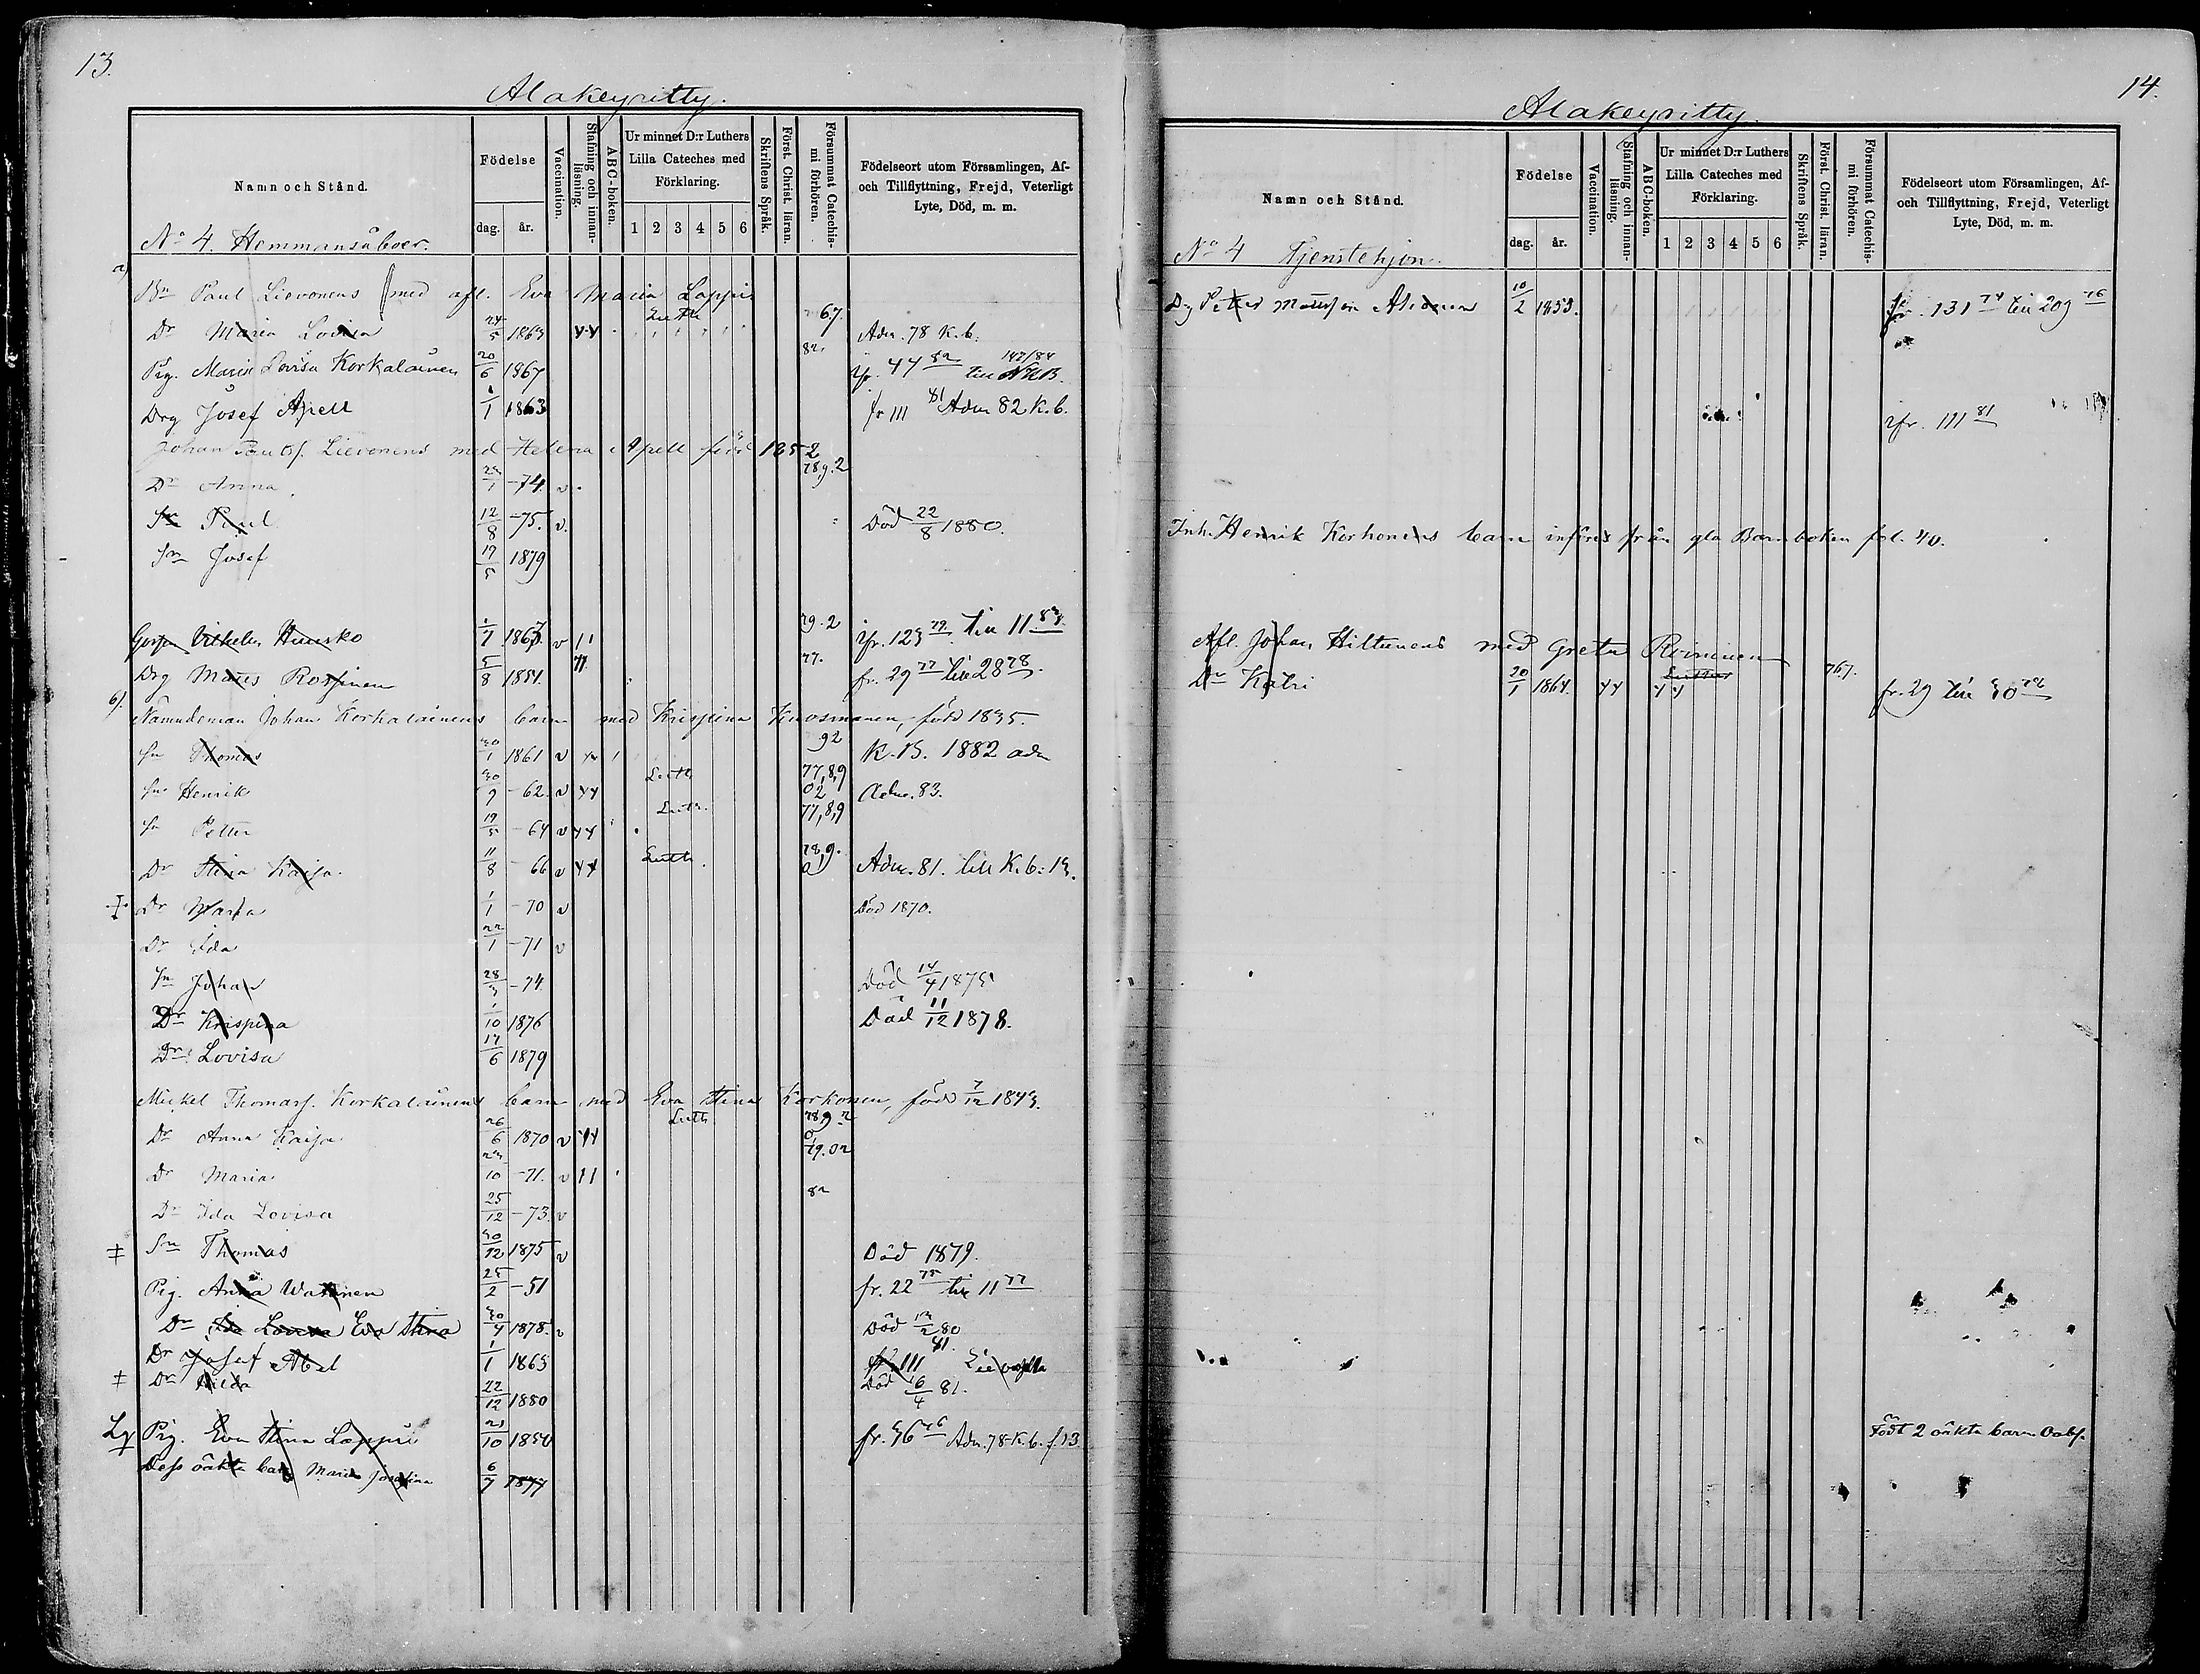 13.
Alakeyritty.
Namn och Stånd.
Födelse
dag. år.
Vaccination.
Stafning och innanläsning.
ABC-boken.
Ur minnet D:r Luthers Lilla Cateches med Förklaring.
1 2 3 4 5 6
Skriftens Språk.
Först. Christ. läran.
Försummat Catechismi förhören.
Födelseort utom Församlingen, Af- och Tillflyttning, Frejd, Veterligt Lyte, Död, m. m.
No 4. Hemmansåboer.
a) Bn Paul Lievonens med afl. Eva Maria Lappi
Dr Maria Lovisa 24/5 1863 Luth 67. Adm. 78 K.b.
Pig. Maria Lovisa Korkalainen 20/6 1867 82 fr. 44 82 till 142/84
Drg Josef Apell 1/1 1863 fr 111 81 Adm 82 K.b.
Johan Paulsf. Lievonens med Helena Apell född 1852
Dr Anna 1 -74. v 78,9.2
Sn Paul 12/8 -75. v. Död 22/8 1880.
Sn Josef 19/5 1879
Vilhelm 1867 v 79.2 fr. 123 79 till 11 83
Drg Mats Rossinen 5/8 1851. 77. fr. 29 77 till 28 78.
b) Nämndeman Johan Korkalainens barn med Krispina Kuosmanen, född 1835.
Sn Thomas 30/1 1861 v 92 K.B. 1882 adm
Sn Henrik 30/9 -62. v Luth 77,8,9 02 Adm. 83.
Sn Petter 19/5 -64 v Luth. 77,8,9
Dr Stina Kaisa 11/8 66 v Luth. 78,9. 0 Adm. 81. till K.b. 13.
Dr Maria 1/1 -70 v Död 1870.
Dr Ida 22/1 -71 v
Sn Johan 28/3 -74. Död 14/4 1875
Dr Krispina 1/10 1876 Död 11/12 1878.
Dr Lovisa 17/6 1879
Mickel Thomasf. Korkalainens barn med Eva Stina Korhonen, född 7/12 1843.
Dr Anna Kaisa 26/6 1870 v Luth. 78,9 2
Dr Maria 23/10 -71. v 0 79.02
Dr Ida Lovisa 25/12 -73. v 82
Sn Thomas 30/12 1875 v Död 1879.
Pig. Anna Watanen 25/2 -51 fr. 22 75 till 11 77
Dr Ida Lovisa Eva Stina 30/4 1878. v Död 80
Dr Josef Abel 1/1 1863 fr. 111 81.
Dr Hilda 22/12 1880 Död 6/4 81.
Pig. Eva Stina Lappi 10 1850 fr. 36 76 Adm. 78 K.b. f. 13
Dess oäkta barn Maria Josefina 6/7 1877
14.
Alakeyritty.
Namn och Stånd.
Födelse
dag. år.
Vaccination.
Stafning och innanläsning.
ABC-boken.
Ur minnet D:r Luthers Lilla Cateches med Förklaring.
1 2 3 4 5 6
Skriftens Språk.
Först. Christ. läran.
Försummat Catechismi förhören.
Födelseort utom Församlingen, Af- och Tillflyttning, Frejd, Veterligt Lyte, Död, m. m.
No 4 Tjenstehjon.
Dg Petter Mattsson 10/2 1853. fr. 131 74 till 209 76
fr. 111 81
Inh. Henrik Korhonens barn införes från gla Barnboken fol. 40.
Afl. Johan Hiltunens med Greta Roininen
Dr Katri 20/1 1864. Luther 767. fr. 29 till 30 76
Födt 2 oäkta barn